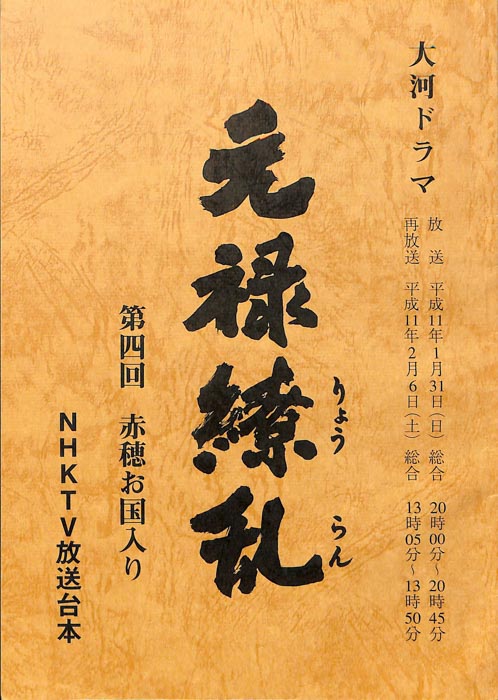 大河ドラマ
放送 平成11年1月31日(日) 総合 20時00分～20時45分
再放送 平成11年2月6日(土) 総合 13時05分～13時50分
元禄繚乱
りょう らん
第四回 赤穂お国入り
NHKTV放送台本